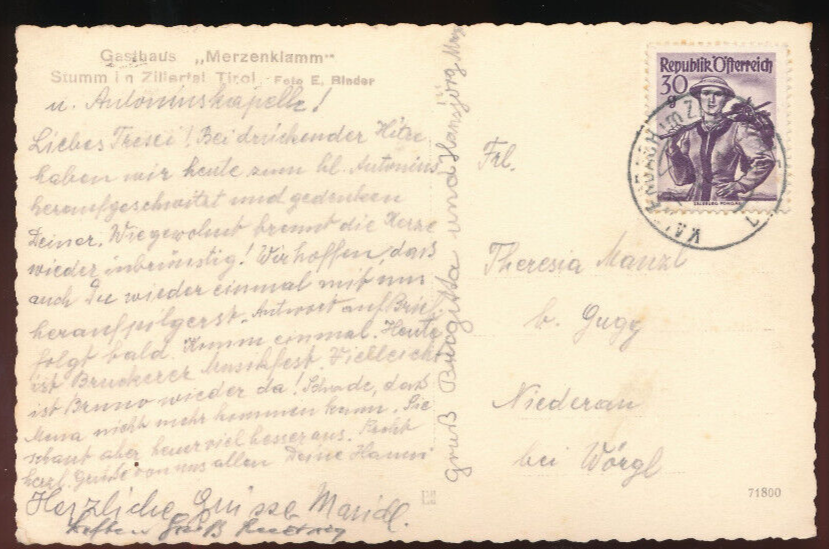 Gasthaus „Merzenklamm“
Stumm in Zillertal Tirol · Foto E. Binder
u. Antoninskapelle!
Liebes Treserl! Bei drückender Hitze
haben wir heute zum hl. Antonius
heraufgeschwitzt und gedenken
Deiner. Wie gewohnt brennt die Kerze
wieder inbrünstig! Wir hoffen, daß
auch Du wieder einmal mit uns
heraufpilgerst. Antwort auf Brief
folgt bald. Komm einmal. Heute
ist Bruckerer Musikfest. Vielleicht
ist Bruno wieder da! Schade, daß
nicht mehr kommen kann. Sie
schaut aber heuer viel besser aus. Recht
herzl. Grüße von uns allen Deine Hanni
Herzliche Grüsse Maridl.
Gruß
Gruß und Hansjörg
Frl.
Theresia Manzl
b. Gugg
Niederau
bei Wörgl
Republik Österreich
30
g
SALZBURG-PONGAU
71800